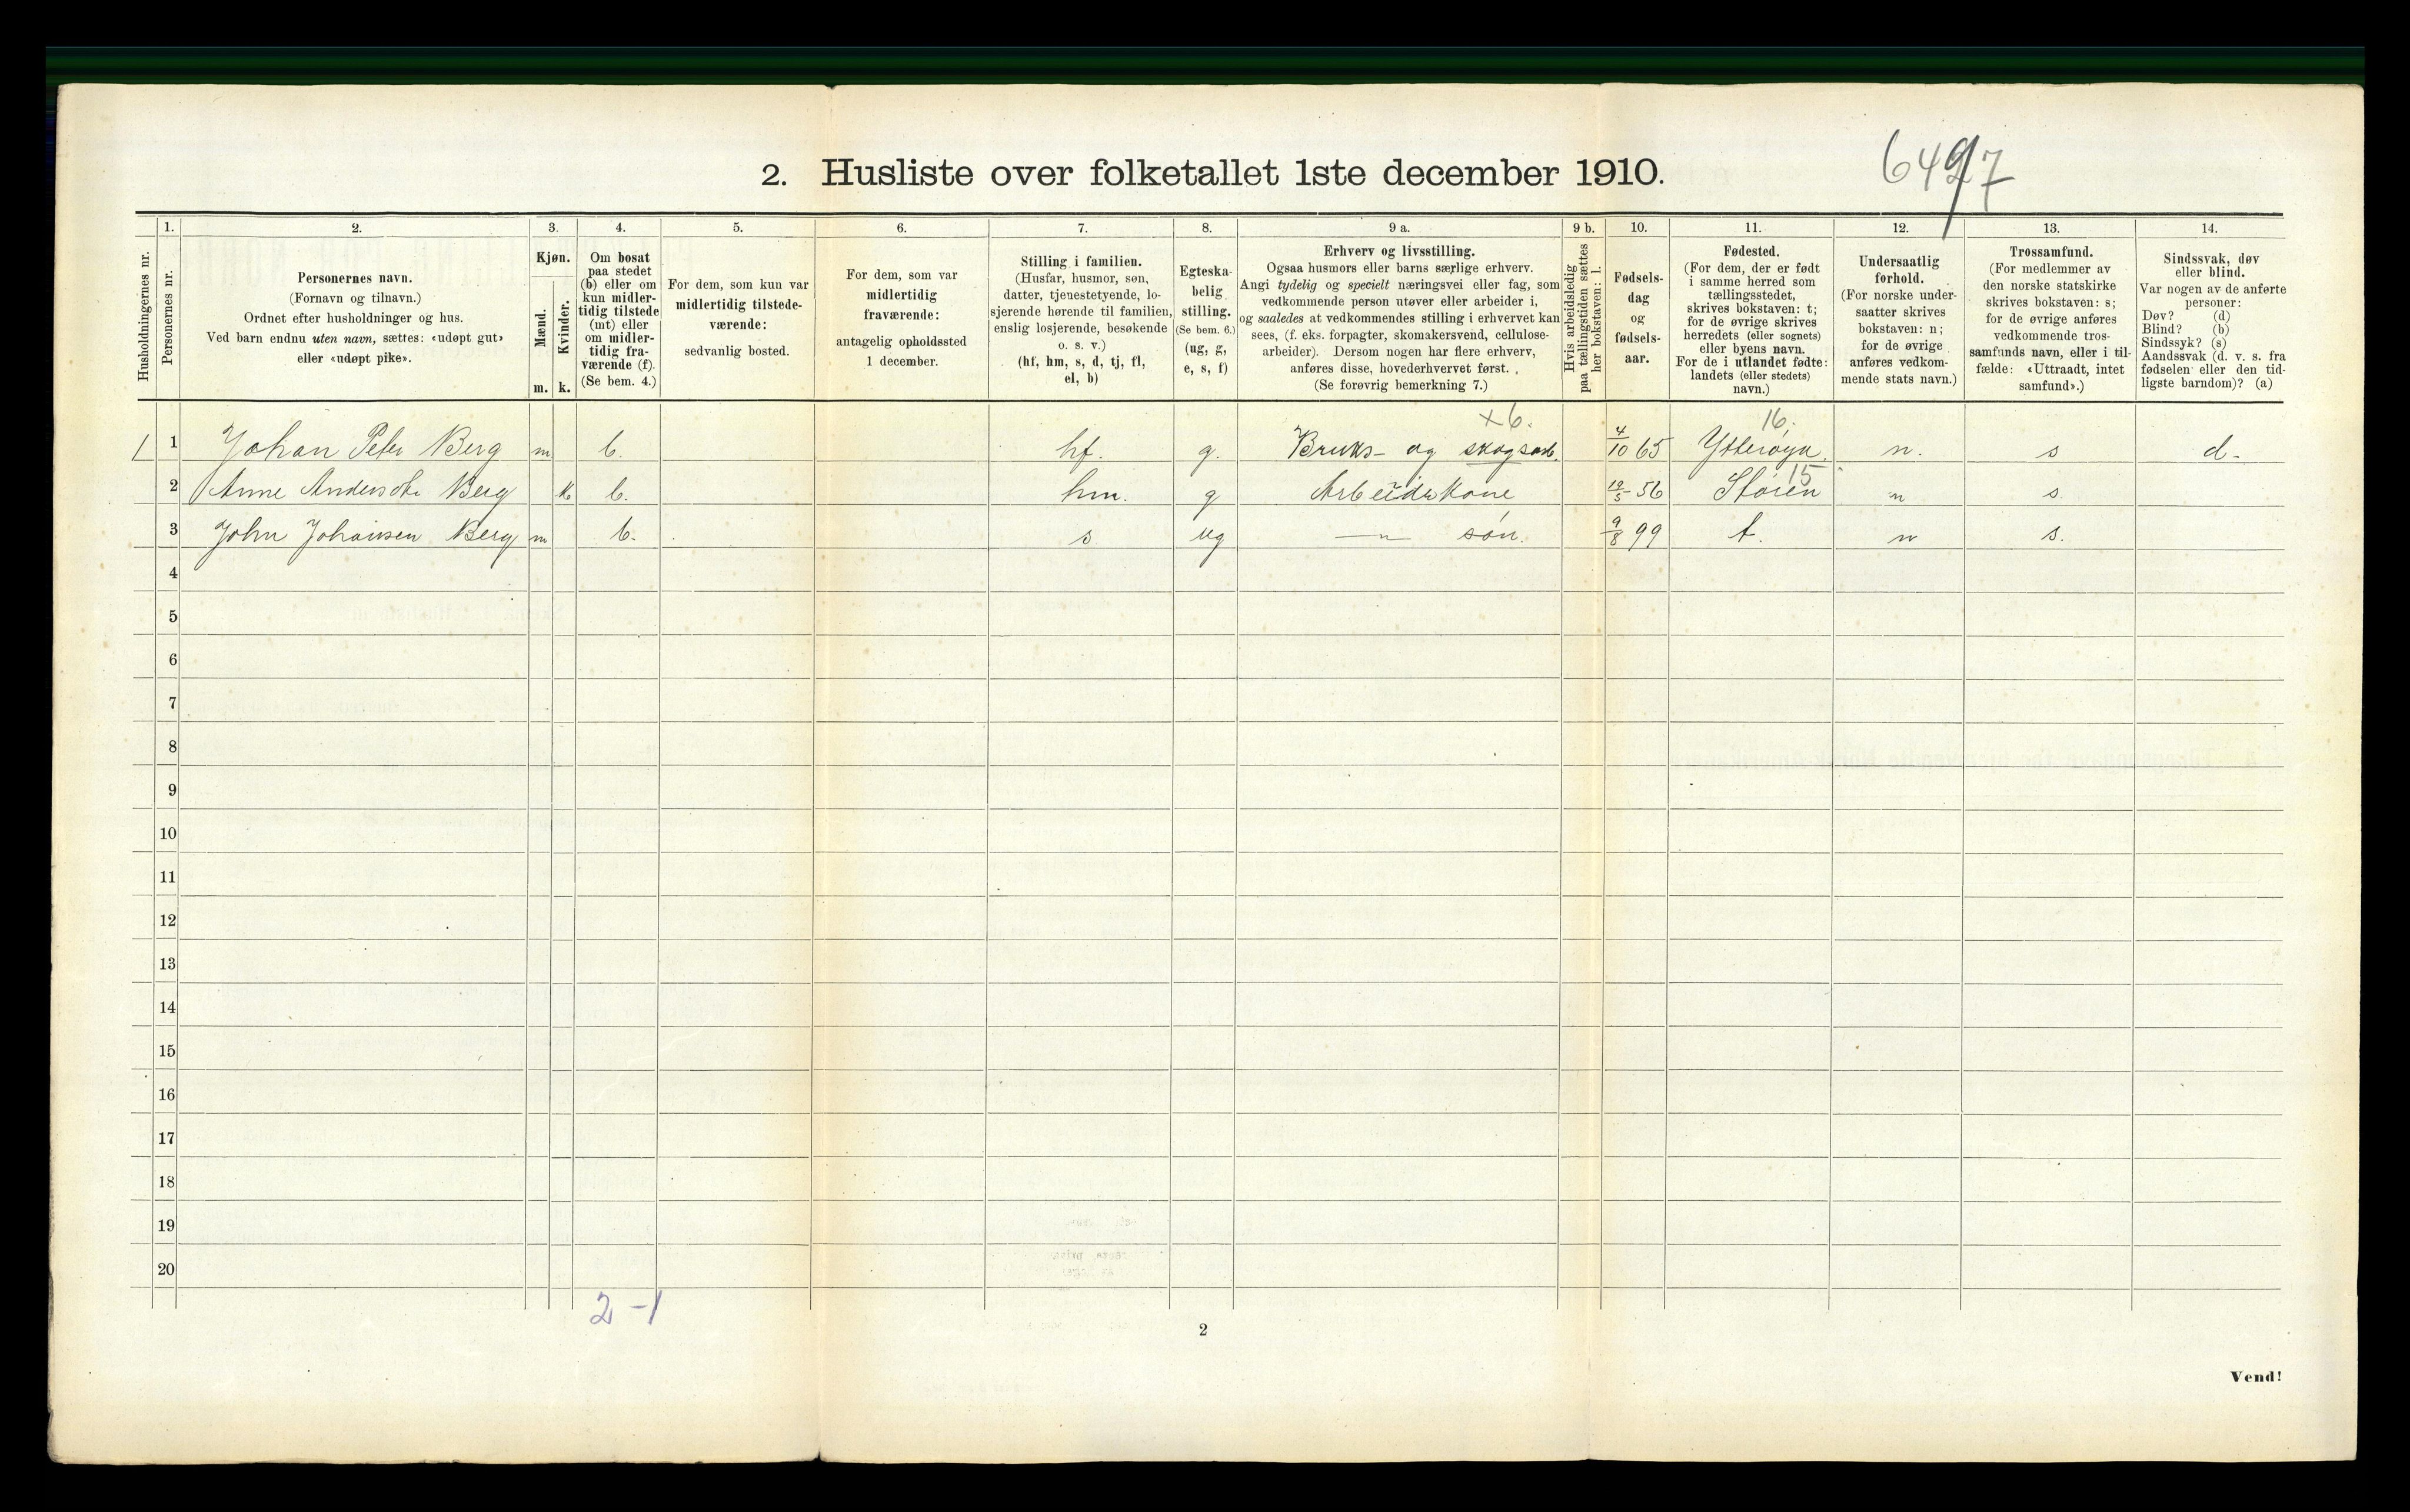 2. Husliste over folketallet 1ste december 1910.
Husholdningernes nr.
1.
Personernes nr.
2.
Personernes navn.
(Fornavn og tilnavn.)
Ordnet efter husholdninger og hus.
Ved barn endnu uten navn, sættes: «udøpt gut»
eller «udøpt pike».
3.
Kjøn.
Mænd.
Kvinder.
m. k.
4.
Om bosat
paa stedet
(b) eller om
kun midler-
tidig tilstede
(mt) eller
om midler-
tidig fra-
værende (f).
(Se bem. 4.)
5.
For dem, som kun var
midlertidig tilstede-
værende:
sedvanlig bosted.
6.
For dem, som var
midlertidig
fraværende:
antagelig opholdssted
1 december.
7.
Stilling i familien.
(Husfar, husmor, søn,
datter, tjenestetyende, lo-
sjerende hørende til familien,
enslig losjerende, besøkende
o. s. v.)
(hf, hm, s, d, tj, fl,
el, b)
8.
Egteska-
belig
stilling.
(Se bem. 6.)
(ug, g,
e, s, f)
9 a.
Erhverv og livsstilling.
Ogsaa husmors eller barns særlige erhverv.
Angi tydelig og specielt næringsvei eller fag, som
vedkommende person utøver eller arbeider i,
og saaledes at vedkommendes stilling i erhvervet kan
sees, (f. eks. forpagter, skomakersvend, cellulose-
arbeider). Dersom nogen har flere erhverv,
anføres disse, hovederhvervet først.
(Se forøvrig bemerkning 7.)
9 b.
Hvis arbeidsledig
paa tællingstiden sættes
her bokstaven: l.
10.
Fødsels-
dag
og
fødsels-
aar.
11.
Fødested.
(For dem, der er født
i samme herred som
tællingsstedet,
skrives bokstaven: t;
for de øvrige skrives
herredets (eller sognets)
eller byens navn.
For de i utlandet fødte:
landets (eller stedets)
navn.)
12.
Undersaatlig
forhold.
(For norske under-
saatter skrives
bokstaven: n;
for de øvrige
anføres vedkom-
mende stats navn.)
13.
Trossamfund.
(For medlemmer av
den norske statskirke
skrives bokstaven: s;
for de øvrige anføres
vedkommende tros-
samfunds navn, eller i til-
fælde: «Uttraadt, intet
samfund».)
14.
Sindssvak, døv
eller blind.
Var nogen av de anførte
personer:
Døv? (d)
Blind? (b)
Sindssyk? (s)
Aandssvak (d. v. s. fra
fødselen eller den tid-
ligste barndom)? (a)
x 6. 16.
1 1 Johan Peter Berg m b. hf. g. Bruks- og skogsarb. 4/10 65 Ytterøya. n. s d.
15
2 Anne Andersdtr Berg k b. hm. g Arbeiderkone 19/5 56 Støren n s
3 John Johansen Berg m b. s ug — " — søn. 9/8 99 t. n s.
4
5
6
7
8
9
10
11
12
13
14
15
16
17
18
19
20
2 - 1
2
Vend!